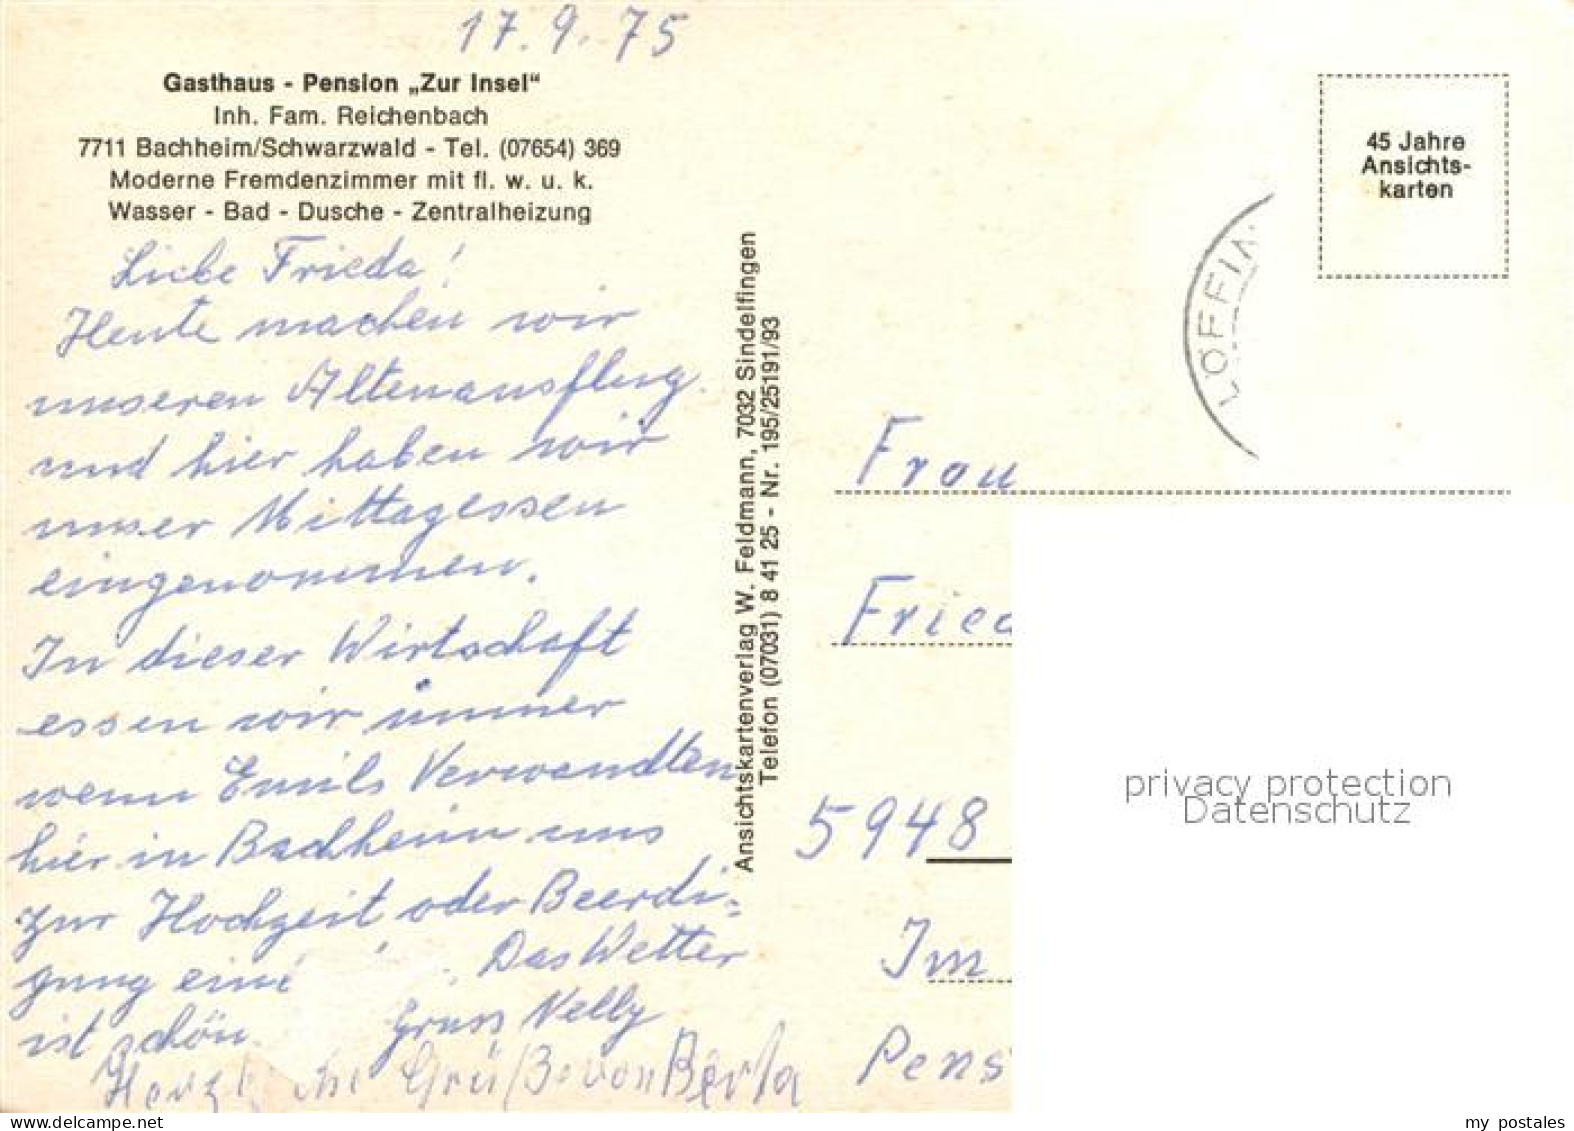 17.9.75
Gasthaus - Pension „Zur Insel“
Inh. Fam. Reichenbach
7711 Bachheim/Schwarzwald - Tel. (07654) 369
Moderne Fremdenzimmer mit fl. w. u. k.
Wasser - Bad - Dusche - Zentralheizung
Liebe Frieda!
Heute machen wir
unseren Altenausflug
und hier haben wir
unser Mittagessen
eingenommen.
In dieser Wirtschaft
essen wir immer
wenn Emils Verwandten
hier in Bachheim uns
zur Hochzeit oder Beerdi=
gung
Das Wetter
ist schön.
Gruss Nelly
Grüße von Berta
Ansichtskartenverlag W. Feldmann, 7032 Sindelfingen
Telefon (07031) 8 41 25 - Nr. 195/25191/93
45 Jahre
Ansichts-
karten
LÖFFIN
Frau
Fried
5948
Im
Pens
privacy protection
Datenschutz
my postales